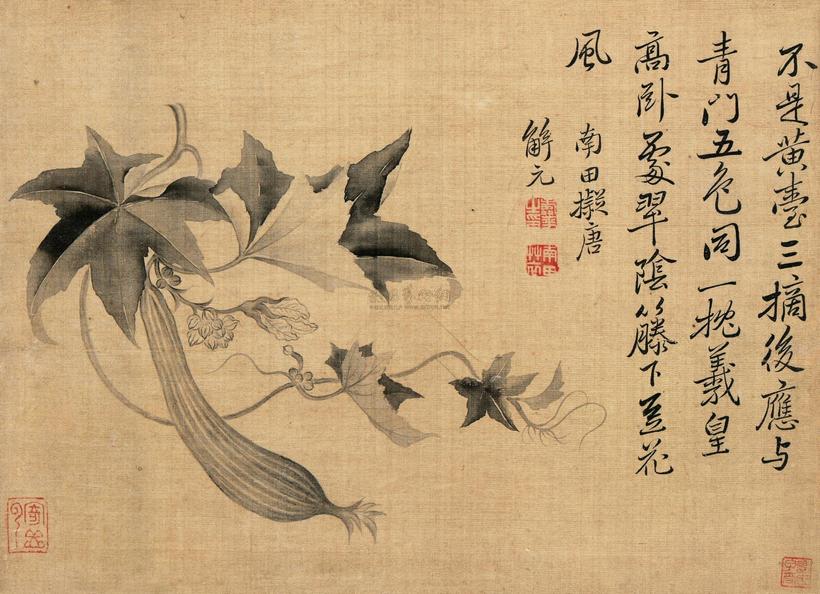 不是黃臺三摘後應与
青門五色同一枕羲皇
高卧處翠陰籐下荳花
風
南田擬唐
解元